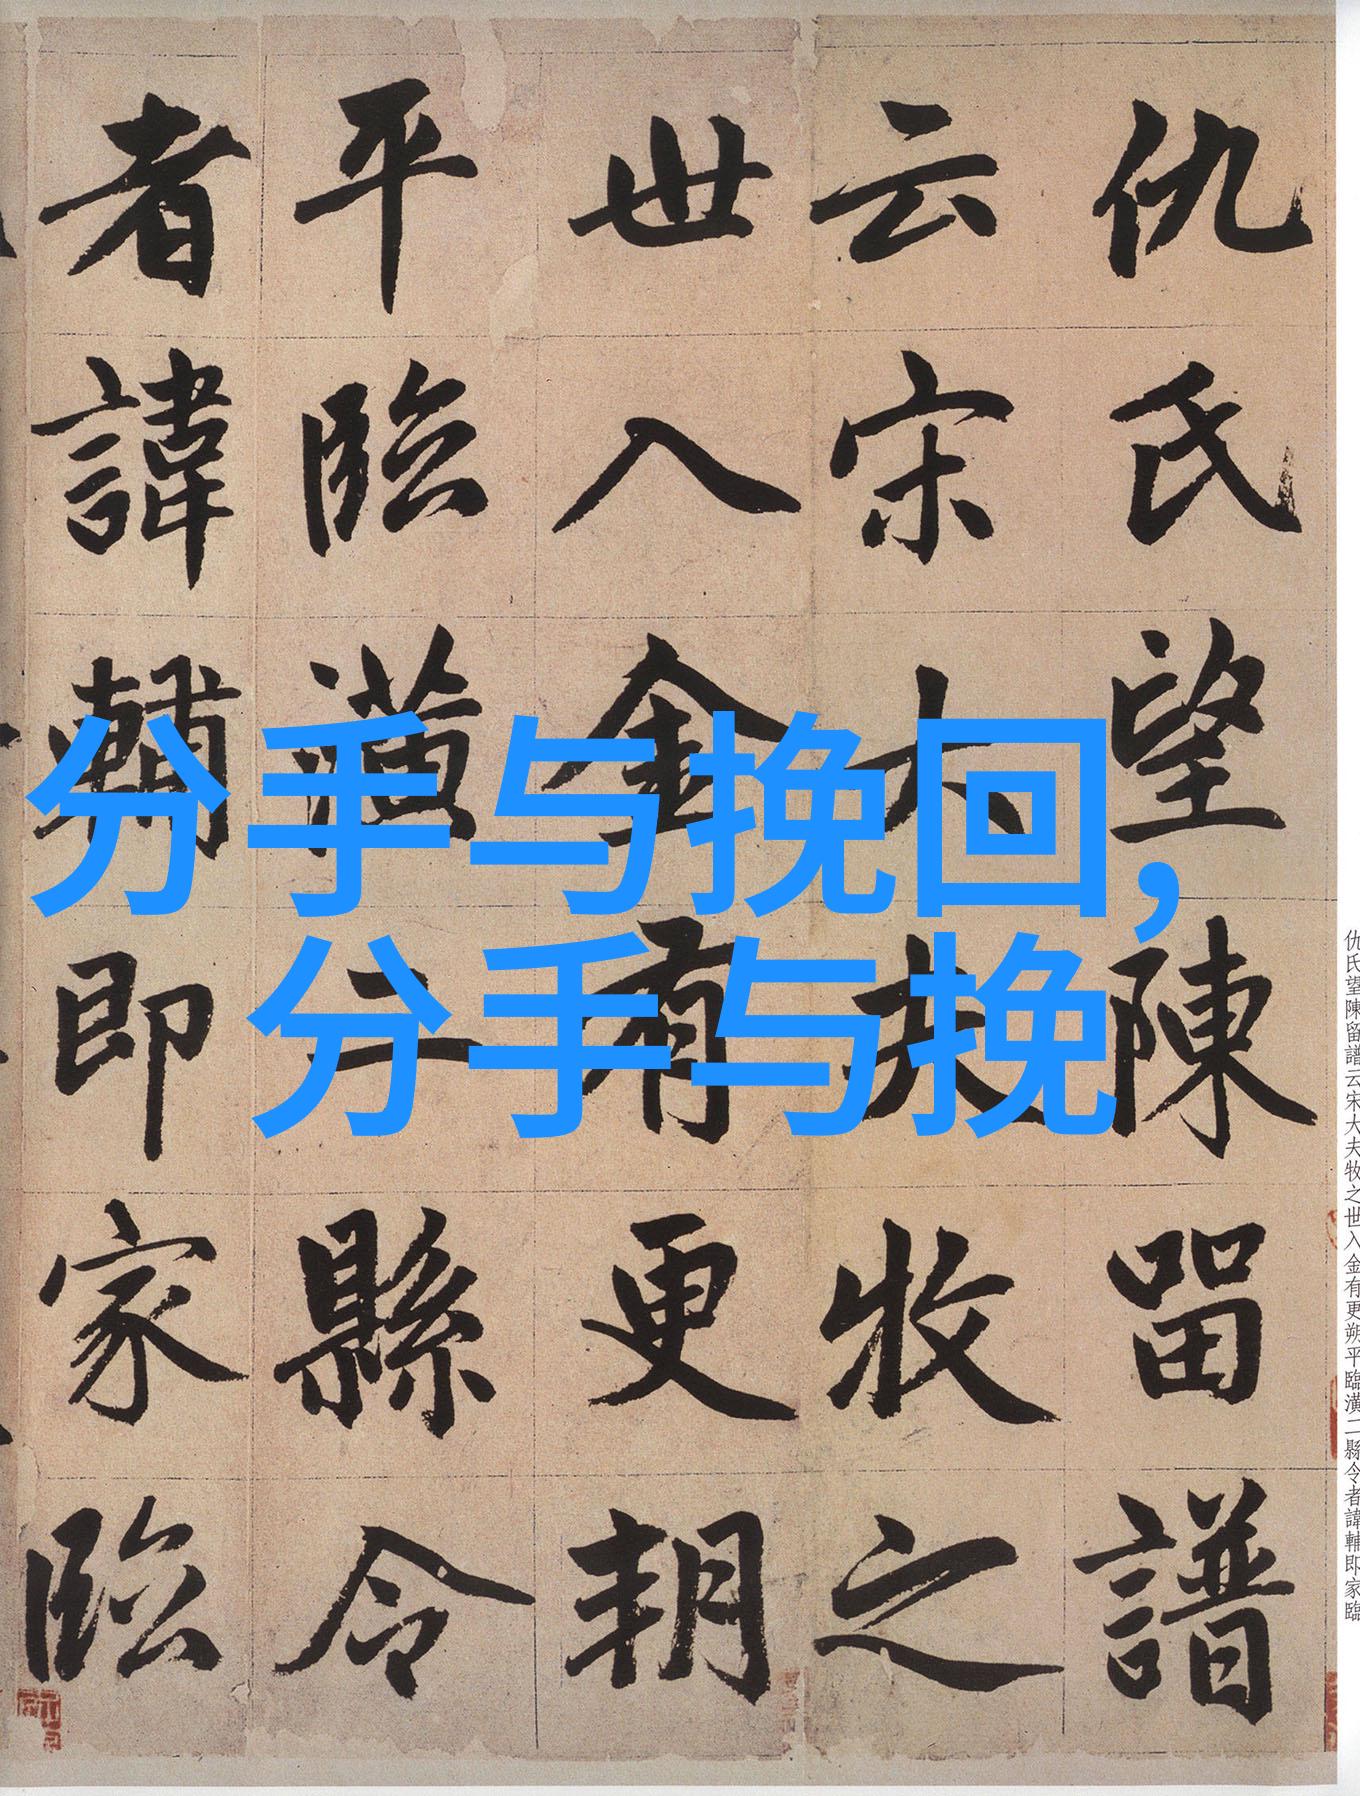 仇氏望陳留譜
云宋大夫牧之
世入金有更朔
平臨潢二縣令
者諱輔即家臨
分手与挽回,
分手与挽
仇氏望陳留譜云宋大夫牧之世入金有更朔平臨潢二縣令者諱輔即家臨